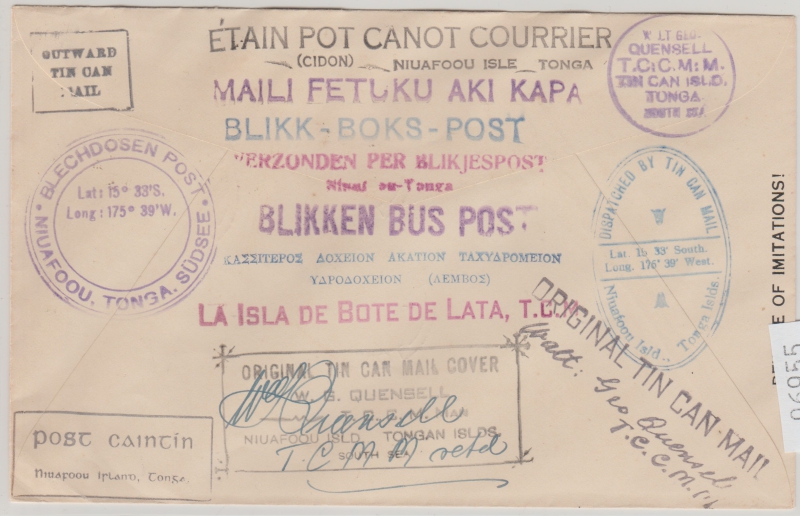 OUTWARD
TIN CAN
MAIL
ÉTAIN POT CANOT COURRIER
(CIDON) NIUAFOOU ISLE TONGA
MAILI FETUKU AKI KAPA
BLIKK-BOKS-POST
VERZONDEN PER BLIKJESPOST
ou-Tonga
BLIKKEN BUS POST
ΚΑΣΣΙΤΕΡΟΣ ΔΟΧΕΙΟΝ ΑΚΑΤΙΟΝ ΤΑΧΥΔΡΟΜΕΙΟΝ
ΥΔΡΟΔΟΧΕΙΟΝ (ΛΕΜΒΟΣ)
LA ISLA DE BOTE DE LATA, T.C.
W. LT GEO.
QUENSELL
T.C.C.M.M.
TIN CAN ISLD.
TONGA
SOUTH SEA
BLECHDOSEN POST
Lat: 15° 33'S.
Long: 175° 39'W.
NIUAFOOU, TONGA, SÜDSEE
DISPATCHED BY TIN CAN MAIL
Lat. 15 33' South.
Long. 175° 39' West.
Niuafoou Isld., Tonga Islds.
OF IMITATIONS!
06955
ORIGINAL TIN CAN MAIL
Walt: Geo. Quensell
T.C.C.M.M.
ORIGINAL TIN CAN MAIL COVER
W. G. QUENSELL
NIUAFOOU ISLD. TONGAN ISLDS.
SOUTH SEA
Quensell
T.C.M.M retd
Post Caintín
Niuafoou Island, Tonga.